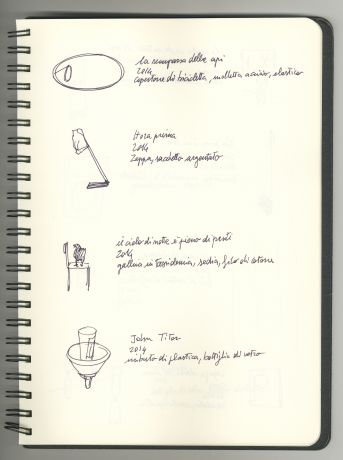 la scomparsa delle api
2014
copertone di bicicletta, molletta acciaio, elastico
Hora prima
2014
Zappa, sacchetto argentato
il cielo di notte è pieno di
2014
gallina in tassidermia, sedia, filo di cotone
John Titor
2014
imbuto di plastica, bottiglia di vetro